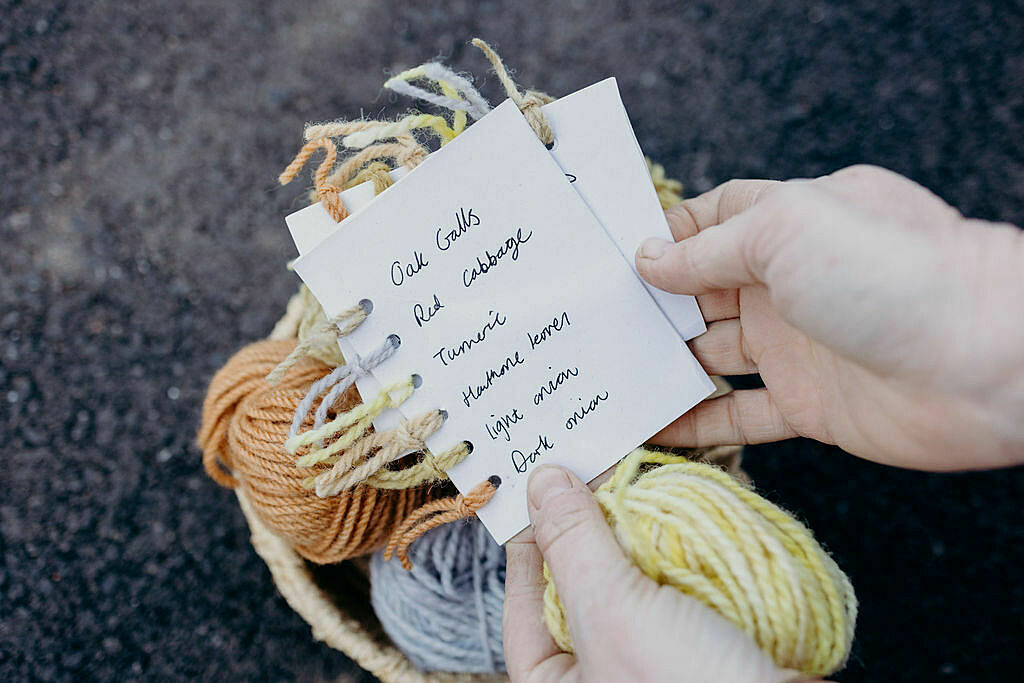 Oak Galls
Red cabbage
Tumeric
Hawthorne leaves
Light onion
Dark onion